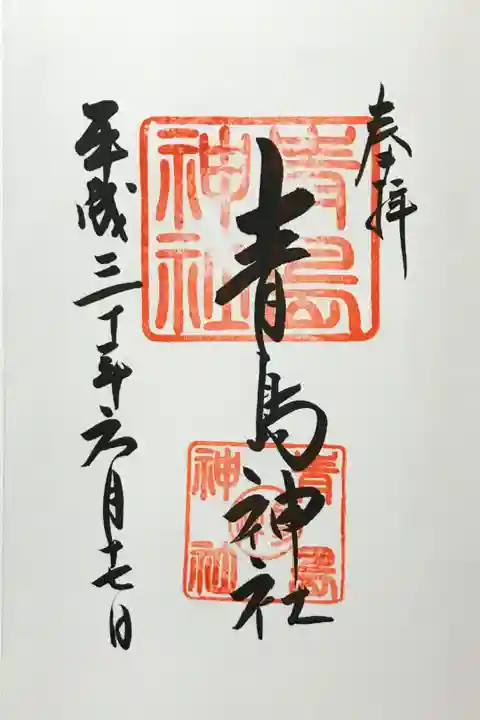 奉拝
青島神社
青島神社
青島神社
平成三十年六月十七日